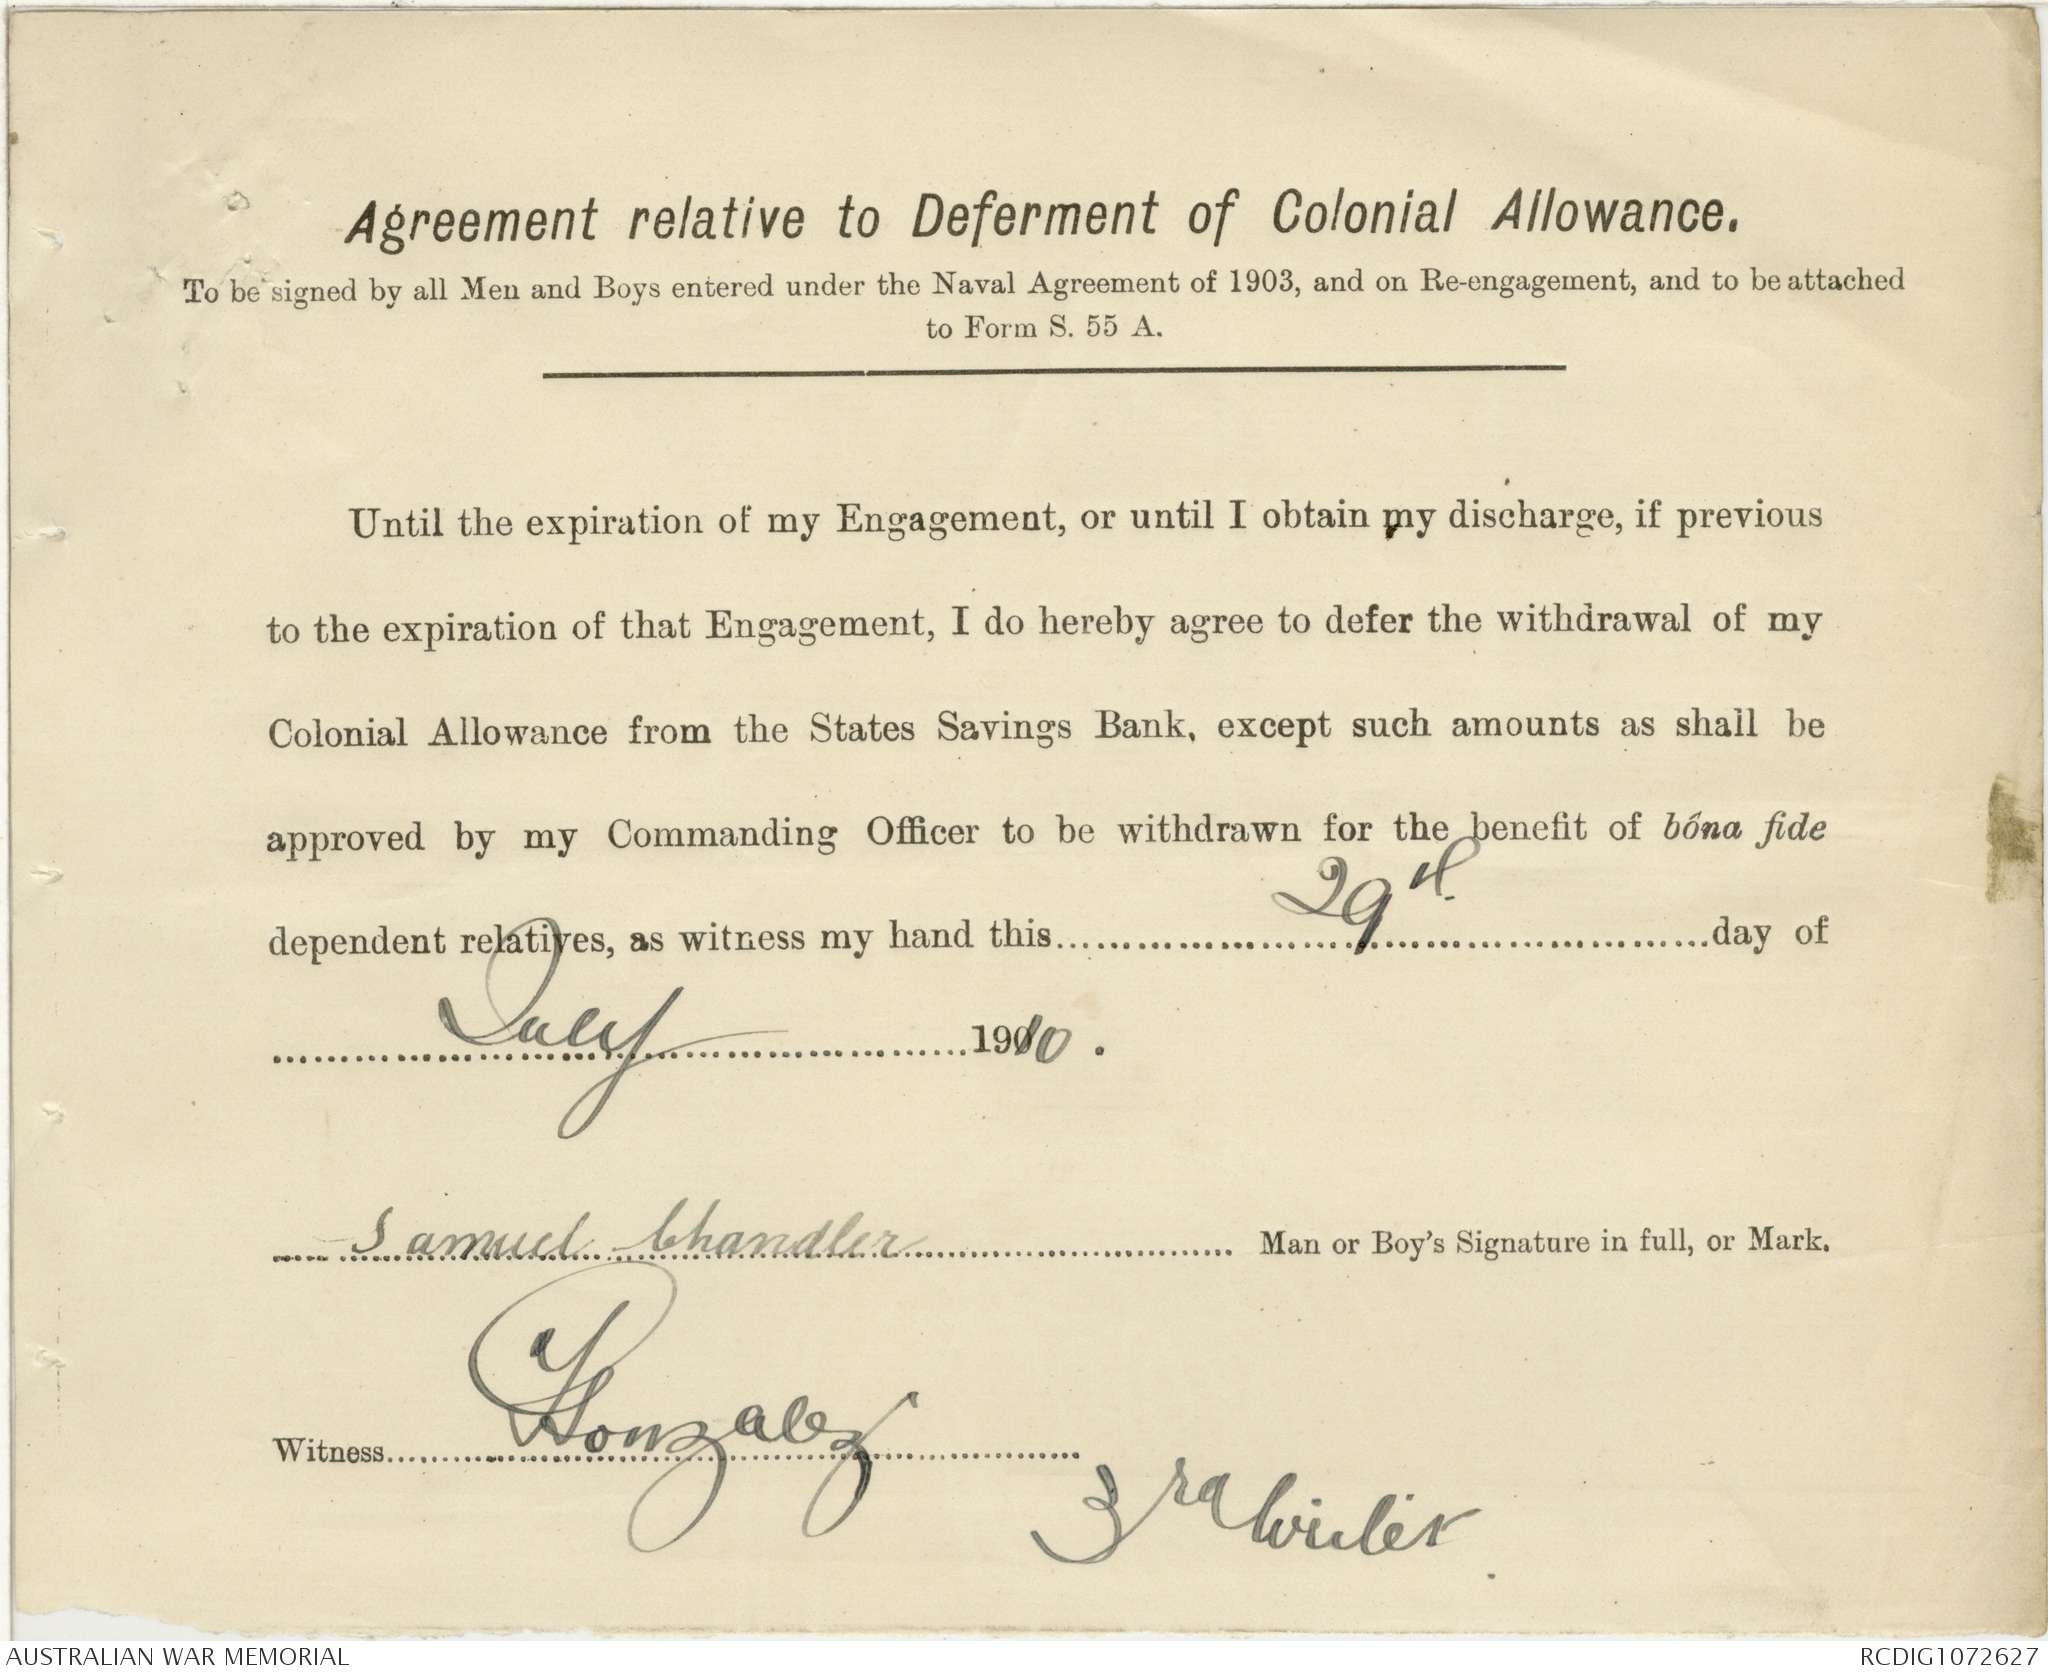 Agreement relative to Deferment of Colonial Allowance.
To be signed by all Men and Boys entered under the Naval Agreement of 1903, and on Re-engagement, and to be attached
to Form S. 55 A.
Until the expiration of my Engagement, or until I obtain my discharge, if previous
to the expiration of that Engagement, I do hereby agree to defer the withdrawal of my
Colonial Allowance from the States Savings Bank, except such amounts as shall be
approved by my Commanding Officer to be withdrawn for the benefit of bóna fide
dependent relatives, as witness my hand this 29th day of
July 1910.
Samuel Chandler Man or Boy's Signature in full, or Mark.
Witness Gonzalez
3rd Writer.
AUSTRALIAN WAR MEMORIAL RCDIG1072627